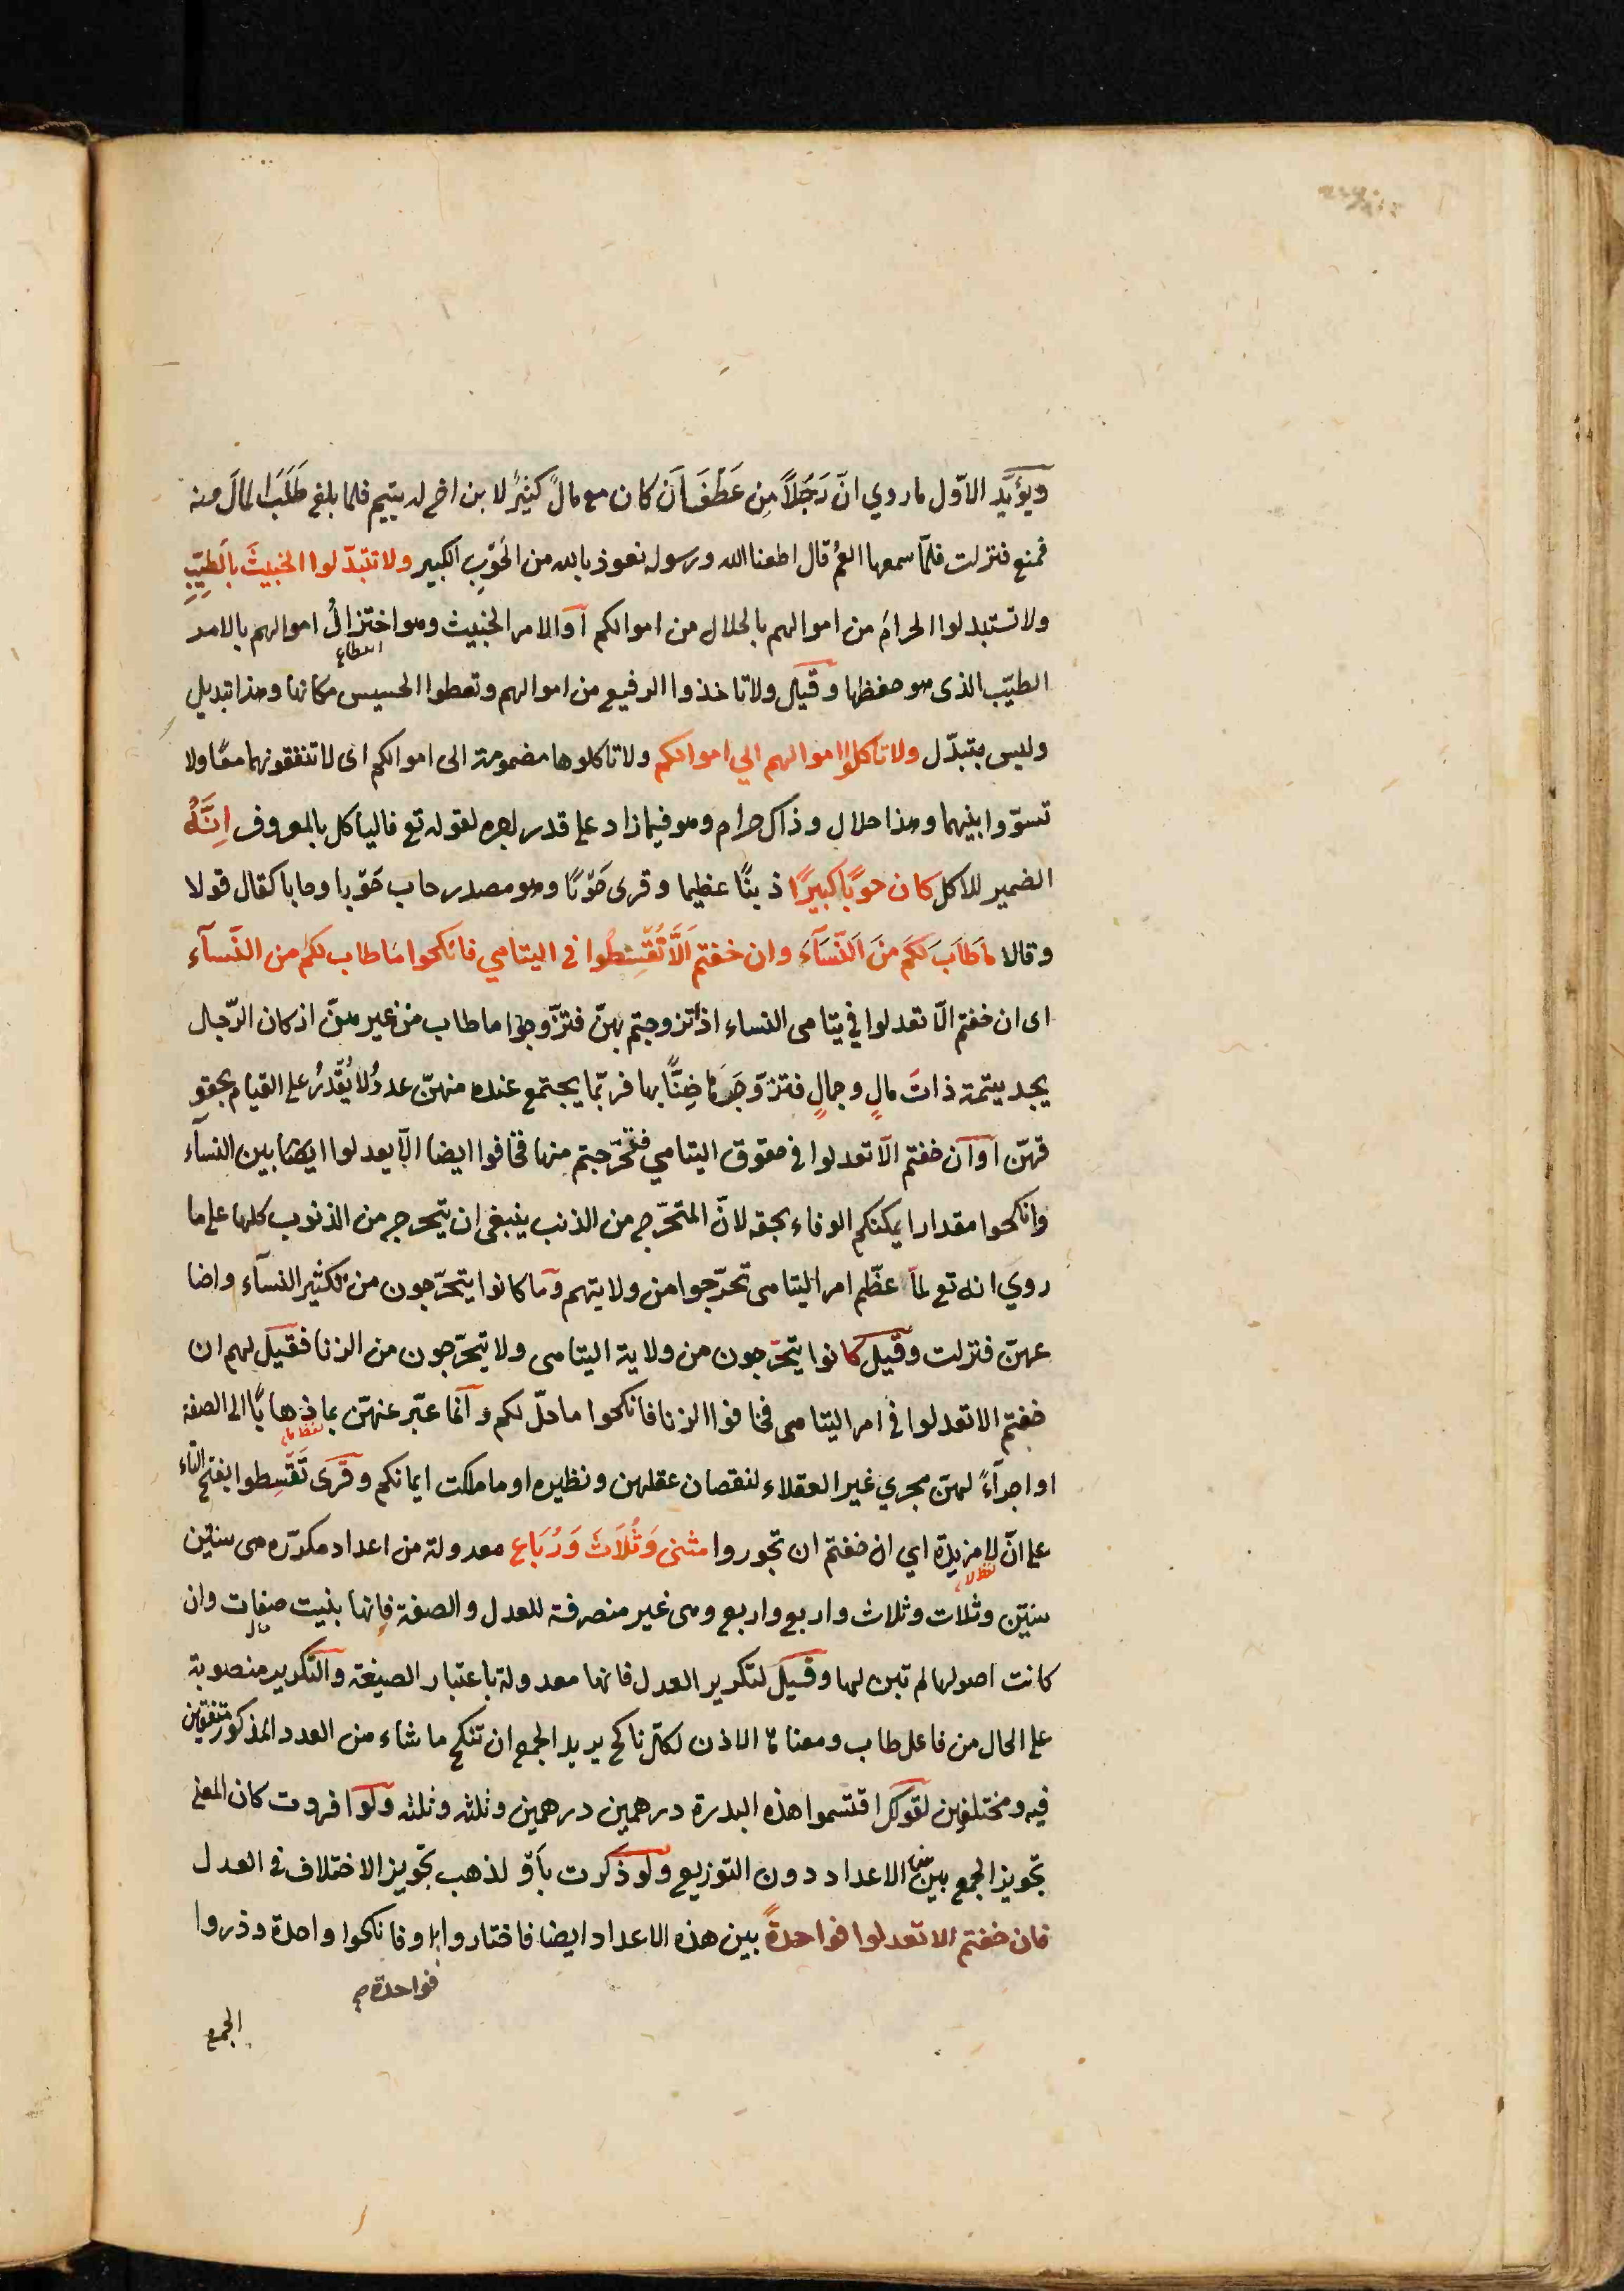 ويؤيّد الاوّل ما روي انّ رَجُلاً مِن غَطْفَاَن كان معه مالٌ كثيرٌ لابن اخ له يتيم فلما بلغ طَلَبَ المالَ منه
فمنع فنزلت فلمّا سمعها العمُّ قال اطعنا الله ورسوله نعوذ بالله من الحَوْبِ الكبير ولا تتبدّلوا الخبيثَ بالطيّبِ
ولا تستبدلوا الحرامَ من اموالهم بالحلال من اموالكم آو الامر الخبيث وهو اختزالُ اموالهم بالامر
اقتطاع
الطيّب الذى هو حفظها وقيل ولا تاخذوا الرفيع من اموالهم وتعطوا الخسيس مكانها وهذا تبديل
وليس بتبدّل ولا تاكلوا اموالهم الي اموالكم ولا تاكلوها مضمومة الى اموالكم اى لا تنفقونهما معًا ولا
تسوّوا بينهما وهذا حلال وذاك حرام وهو فيما زاد على قدر اجره لقوله تع فالياكل بالمعروف اِنَّهُ
الضمير للاكل كان حوبًا كبيرًا ذنبًا عظيما وقرى حَوْبًا وهو مصدر حاب حَوْبا وحابا كقال قولا
وقالا مَاطَابَ لَكَم مِنَ النّسَآءَ وان خفتم اَلَّا تُقْسِطُوا في اليتامي فانكحوا مَا طاب لكم من النّسآء
اى ان خفتم الّا تعدلوا في يتامى النساء اذا تزوجتم بهنّ فتزّوجوا ما طاب من غيرهنّ اذ كان الرّجل
يجد يتيمة ذات مالٍ وجمالٍ فتزوّجَهَا ضِنًّا بها فربّما يجتمع عنده منهنّ عددُ لا يُقْدِرُ على القيام بحقو
قهنّ آوآن خفتم الّا تعدلوا في حقوق اليتامي فتحرّجتم منها فخافوا ايضا الّا يعدلوا ايضا بين النسآء
وانكحوا مقدارا يمكنكم الوفاء بحقه لانّ المتحرّج من الذنب ينبغى ان يتحرج من الذنوب كلها على ما
رويَ انه تع لمّا عظّم امر اليتامى تحرّجوا من ولايتهم وما كانوا يتحرّجون من تكثير النسآء واضا
عهنّ فنزلت وقيل كانوا يتحرّجون من ولاية اليتامى ولا يتحرّجون من الزنا فقيل لهم ان
خفتم الا تعدلوا في امر اليتامى فخافوا الزنا فانكحوا ما حلّ لكم وآنما عبّر عنهنّ بما ذهابًا الى الصفة
لفظ ما
او اجرآءً لهنّ مجري غير العقلاء لنقصان عقلهن ونظيره او ما ملكت ايمانكم وقرى تَقْسِطوا بفتح التاء
على انّ لا مزيدة اي ان خفتم ان تجوروا مثنى وَثُلَاثَ وَرُبَاع معدولة من اعداد مكرّره هى سنتين
لفظ لا
سنتين وثلاث وثلاث واربع واربع وهى غير منصرفة للعدل والصفة فانها بنيت صفات وان
كانت اصولها لم تبن لها وقيل لتكرير العدل فانها معدولة باعتبار الصيغة والتكرير منصوبة
على الحال من فاعل طاب ومعناها الاذن لكل ناكح يريد الجمع ان تنكح ما شاء من العدد المذكور متفقين
فيه ومختلفين لقولك اقتسموا هذه البدرة درهمين درهمين وثلثه وثلثه ولو افردت كان المعنى
تجويز الجمع بين هذه الاعداد دون التوزيع ولو ذكرت بأو لذهب تجويز الاختلاف في العدل
فان خفتم الا تعدلوا فواحدةً بين هذه الاعداد ايضا فاختاروا او فانكحوا واحدة وذروا
فواحدة
الجمع